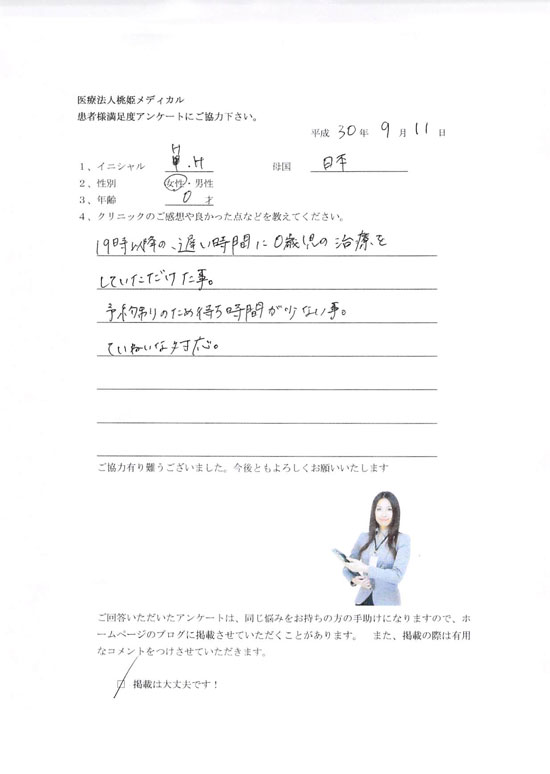 医療法人桃姫メディカル
患者様満足度アンケートにご協力下さい。
平成 30 年 9 月 11 日
1、イニシャル H.H 母国 日本
2、性別 女性・男性
3、年齢 0 才
4、クリニックのご感想や良かった点などを教えてください。
19時以降の、遅い時間に0歳児の治療を
していただけた事。
予約制のため待ち時間が少ない事。
ていねいな対応。
ご協力有り難うございました。今後ともよろしくお願いいたします
ご回答いただいたアンケートは、同じ悩みをお持ちの方の手助けになりますので、ホ
ームページのブログに掲載させていただくことがあります。 また、掲載の際は有用
なコメントをつけさせていただきます。
□ 掲載は大丈夫です！